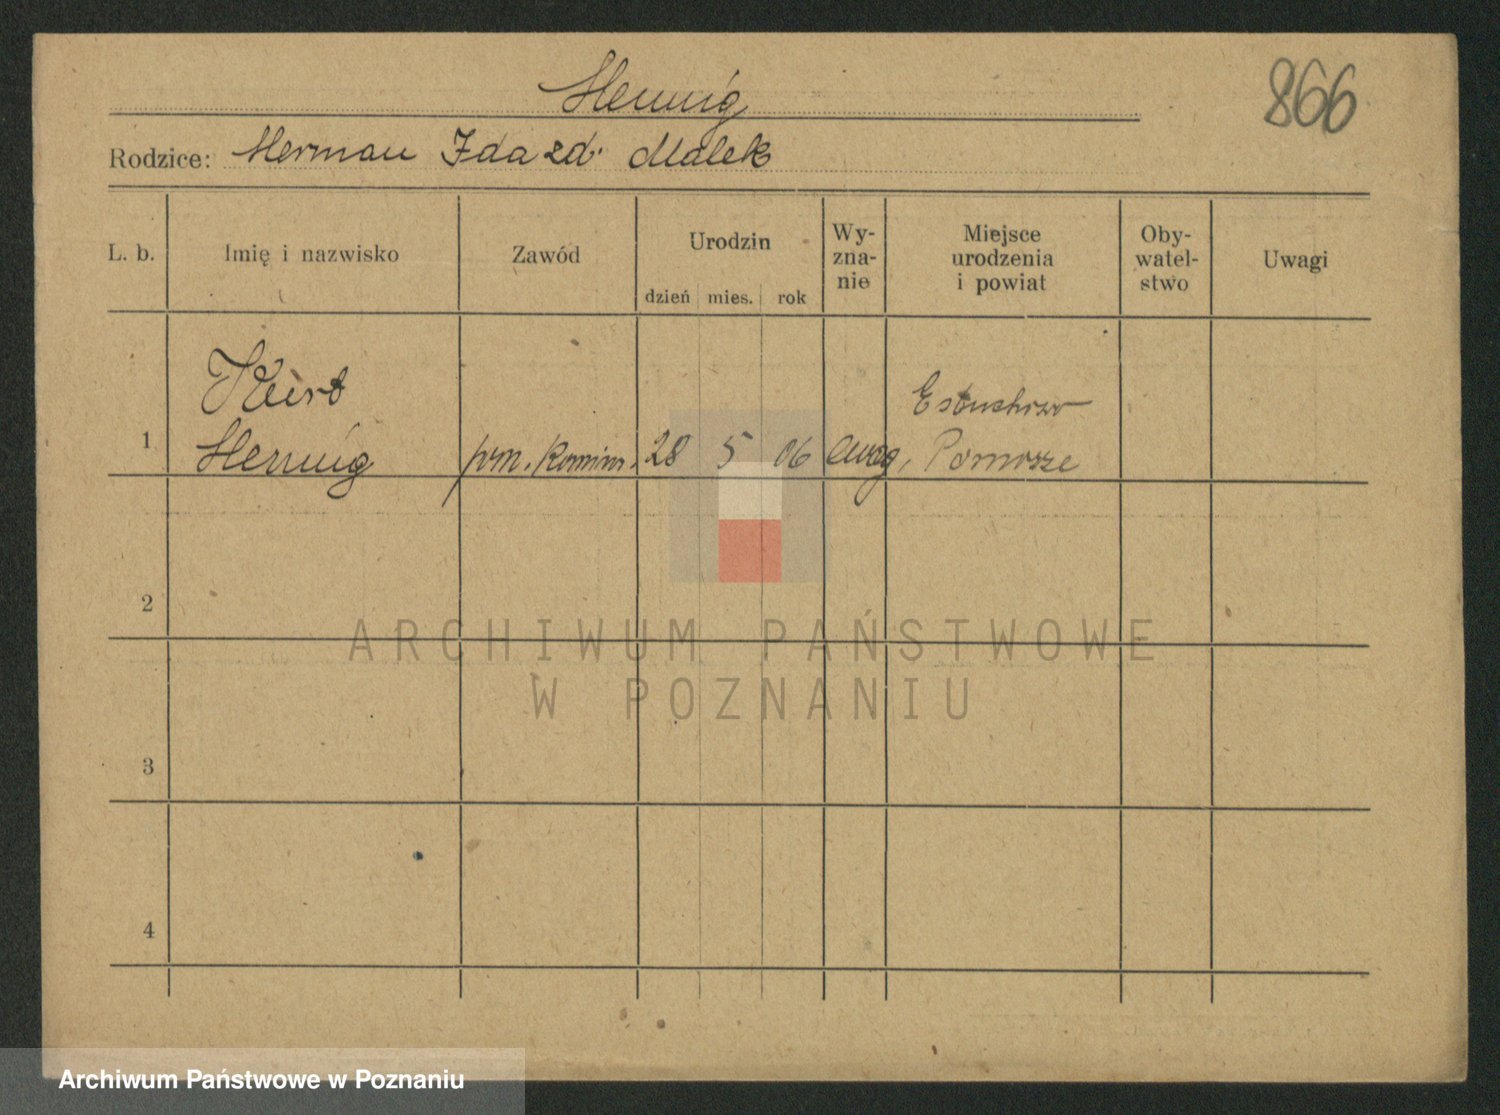 Hennig
866
Rodzice: Herman Ida zd. Malek
L. b.
Imię i nazwisko
Zawód
Urodzin
dzień mies. rok
Wy-
zna-
nie
Miejsce
urodzenia
i powiat
Oby-
watel-
stwo
Uwagi
Kurt
1 Hennig pom. Komin. 28 5 06 ewag.
Pomorze
2
3
4
ARCHIWUM PAŃSTWOWE
W POZNANIU
Archiwum Państwowe w Poznaniu